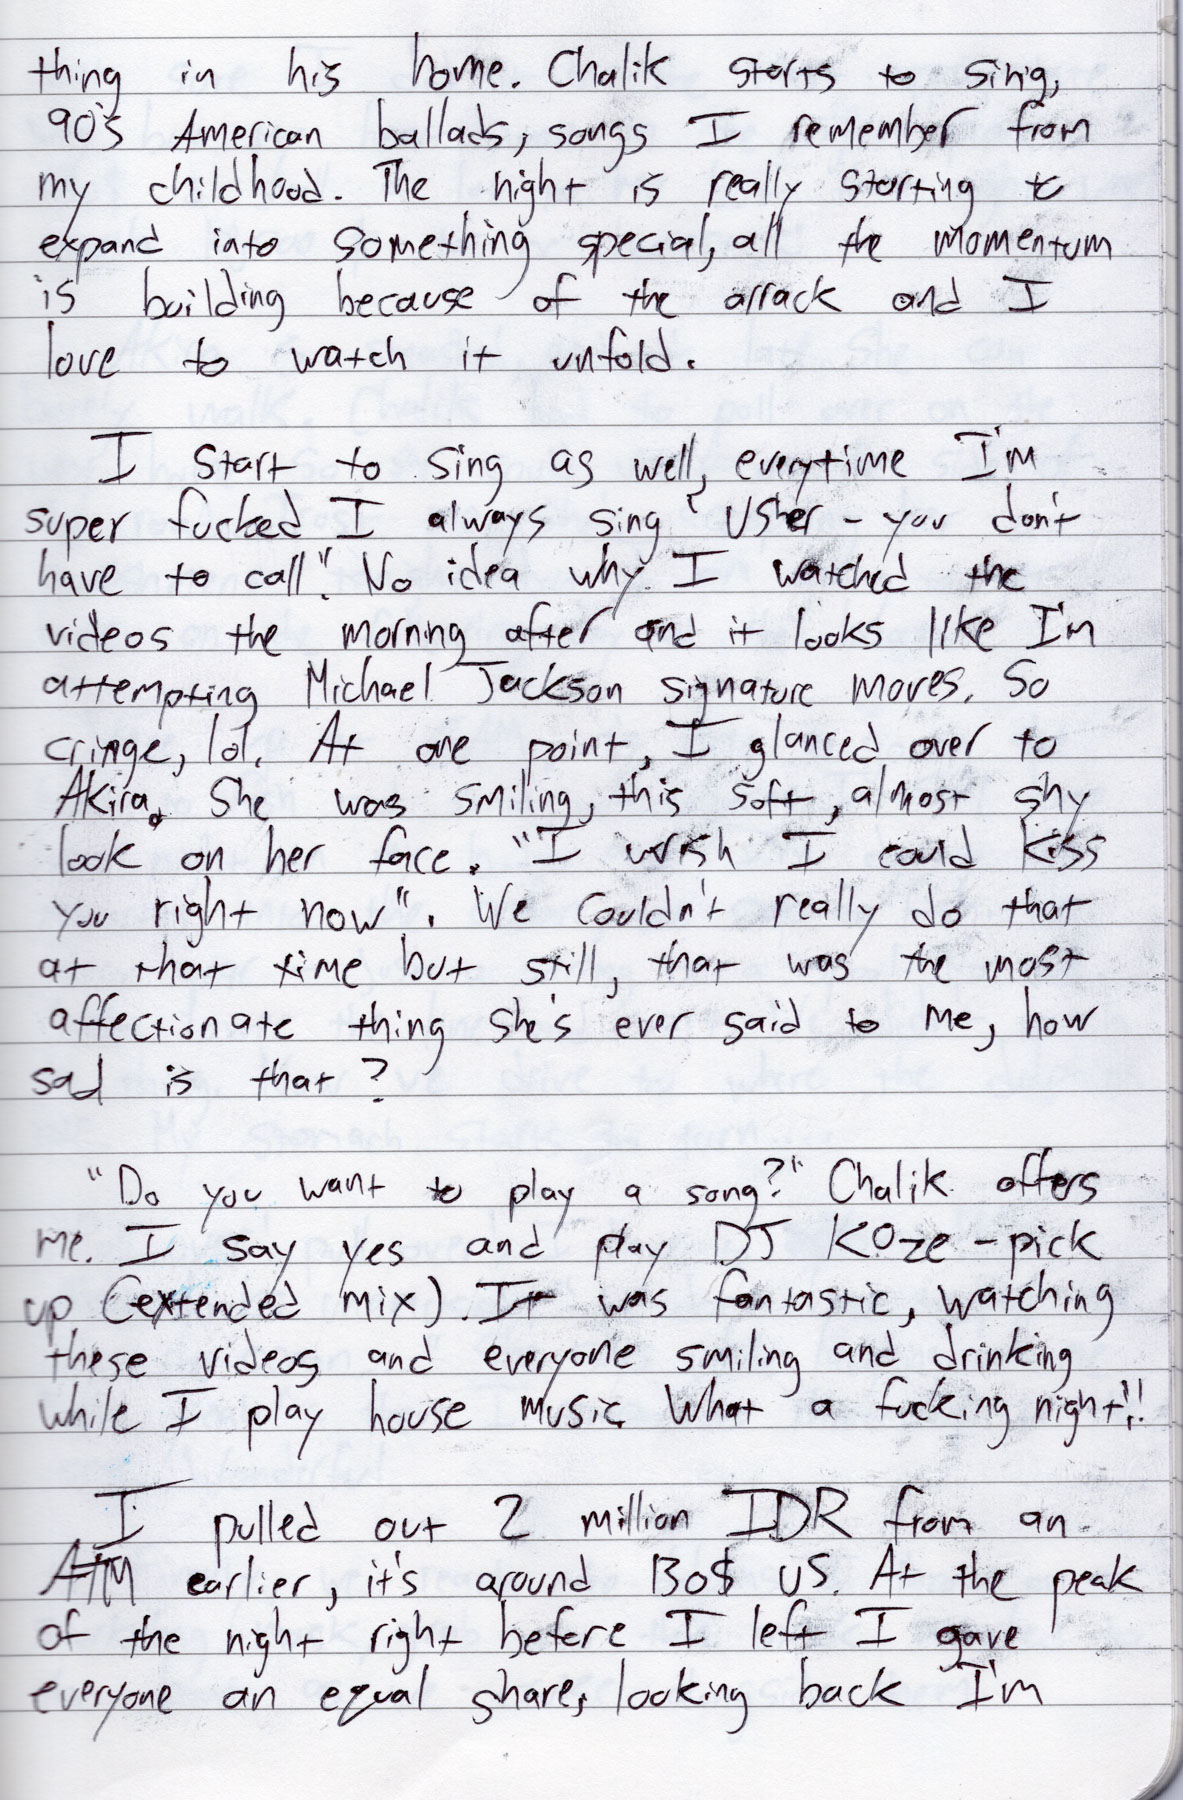 thing in his home. Chalik starts to sing,
90's American ballads, songs I remember from
my childhood. The night is really starting to
expand into something special, all the momentum
is building because of the arrack and I
love to watch it unfold.
I start to sing as well, everytime I'm
super fucked I always sing "Usher - you don't
have to call". No idea why. I watched the
videos the morning after and it looks like I'm
attempting Michael Jackson signature moves. So
cringe, lol. At one point, I glanced over to
Akira. She was smiling, this soft, almost shy
look on her face. "I wish I could kiss
you right now". We couldn't really do that
at that time but still, that was the most
affectionate thing she's ever said to me, how
sad is that?
"Do you want to play a song?" Chalik offers
me. I say yes and play DJ KOze - pick
up (extended mix). It was fantastic, watching
these videos and everyone smiling and drinking
while I play house music. What a fucking night!!
I pulled out 2 million IDR from an
ATM earlier, it's around 130$ US. At the peak
of the night right before I left I gave
everyone an equal share, looking back I'm